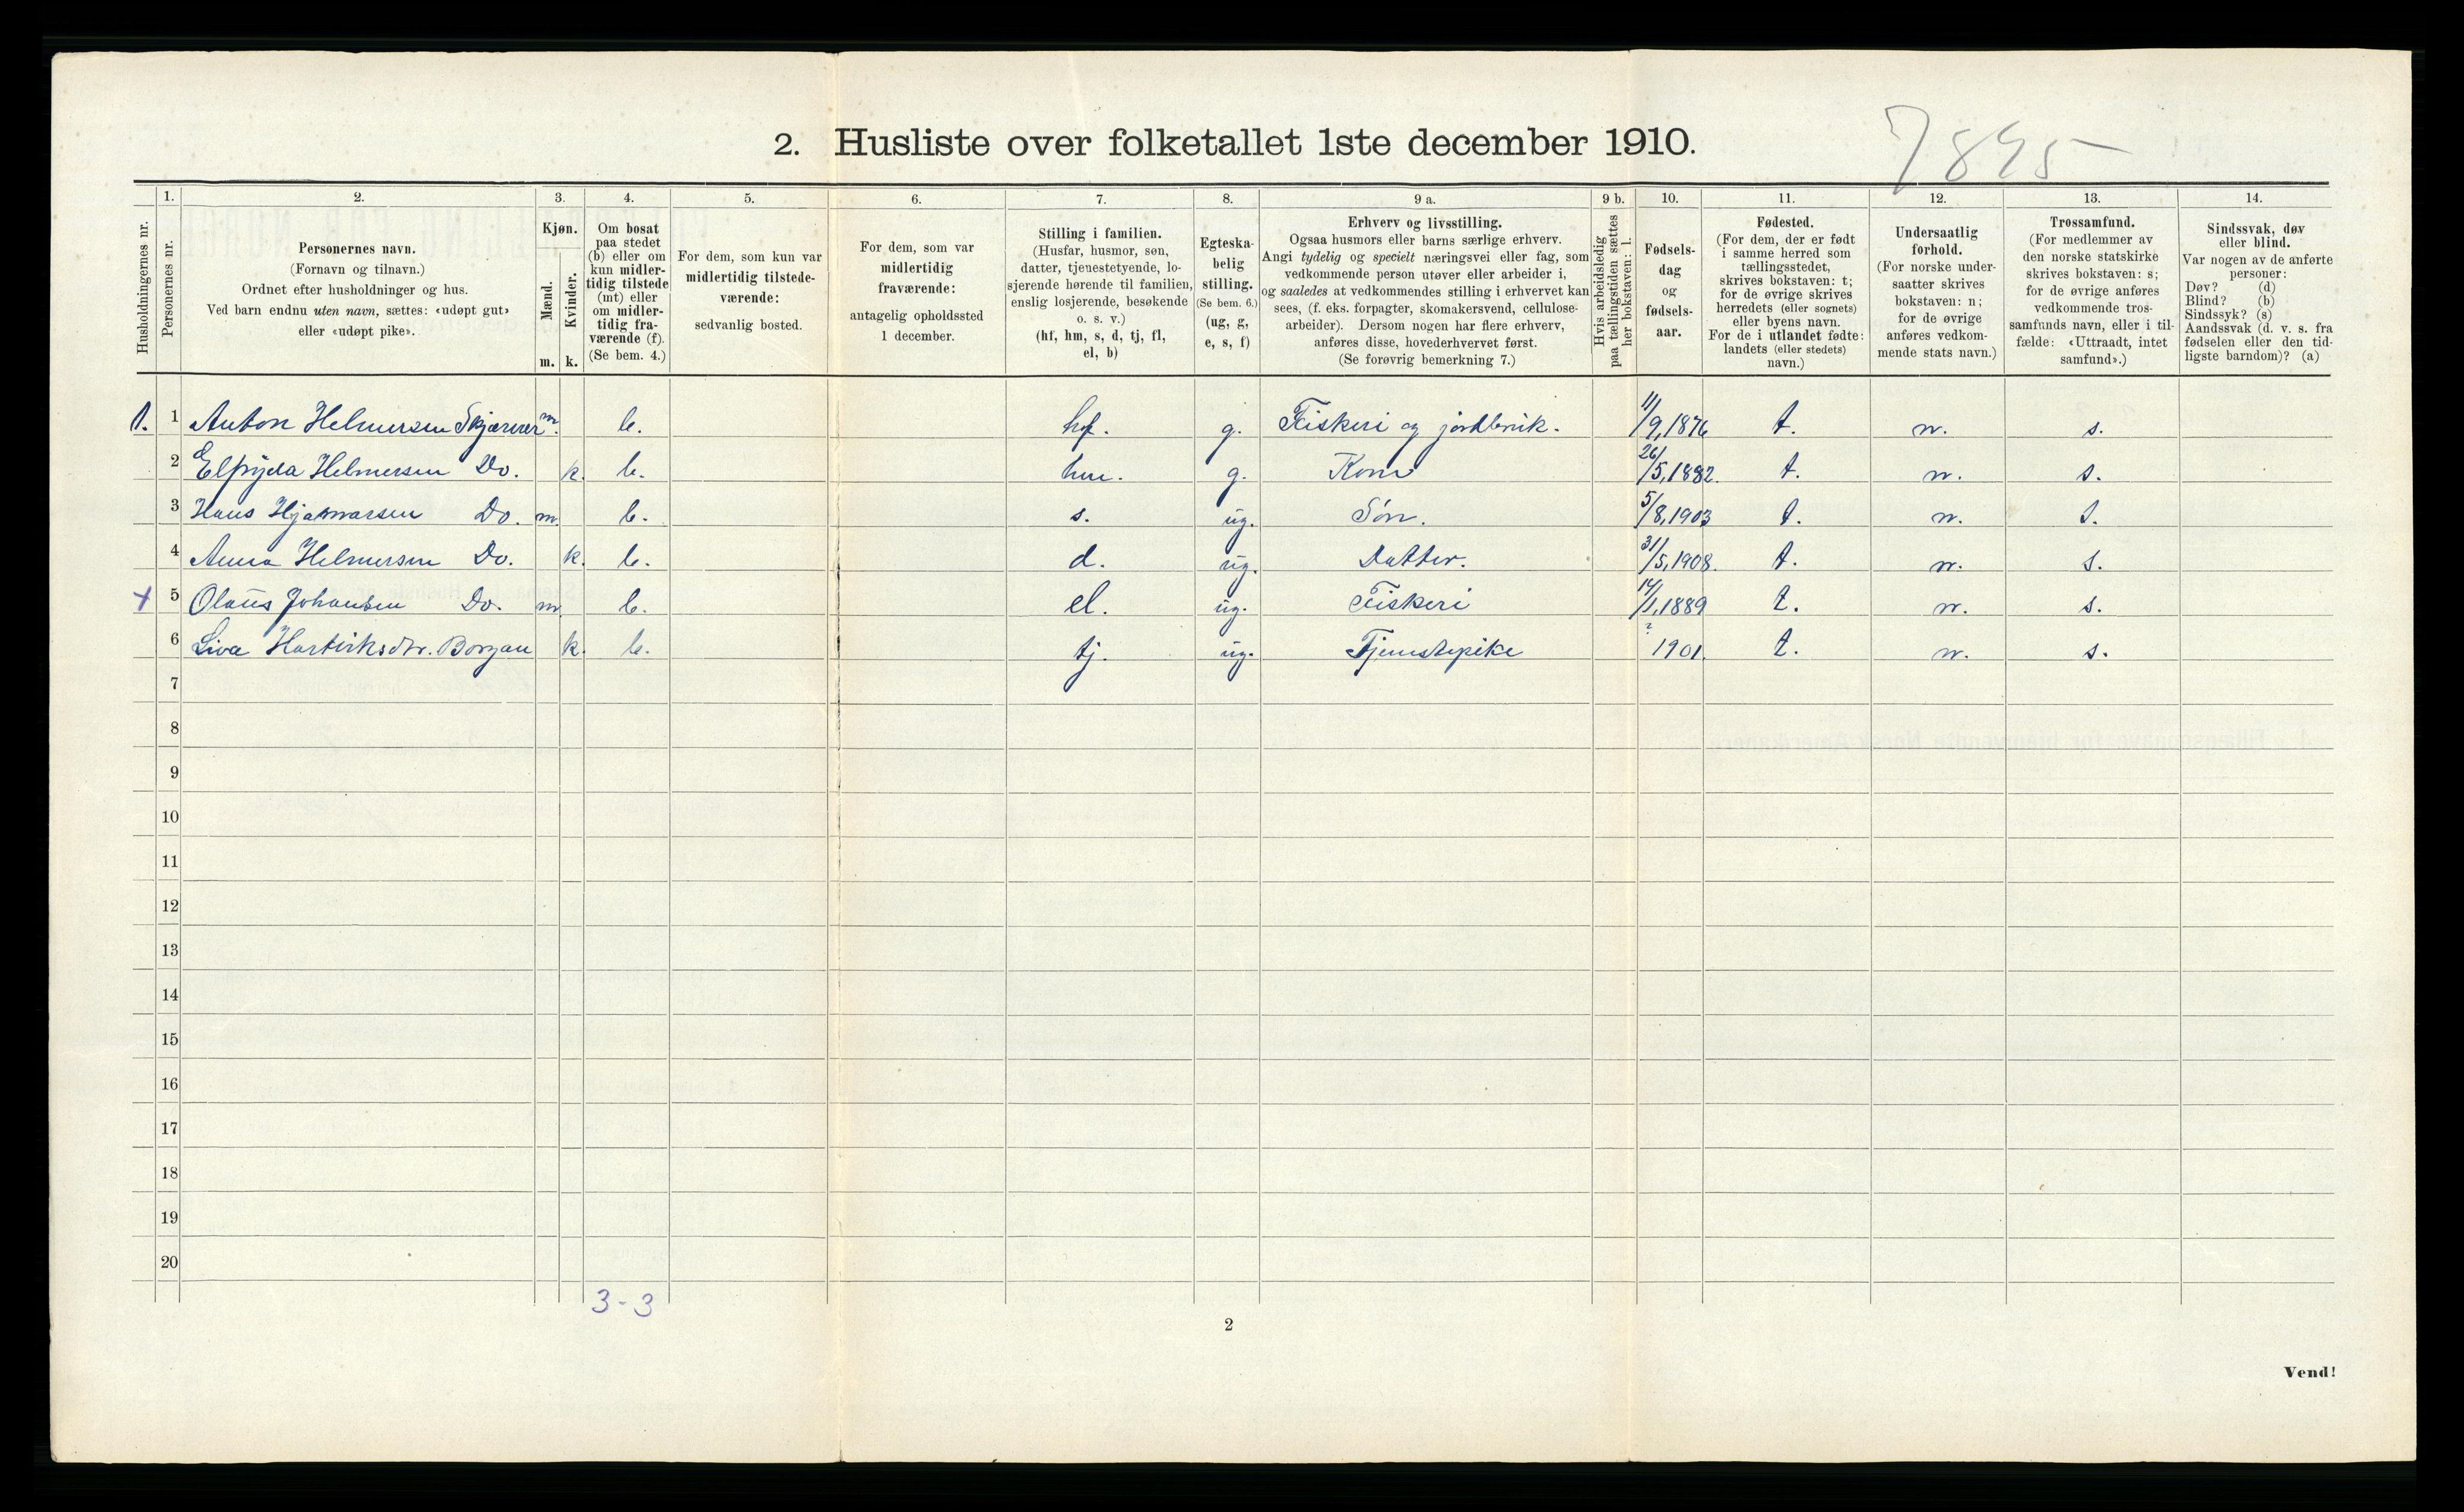 7895
2. Husliste over folketallet 1ste december 1910.
Husholdningernes nr.
1.
Personernes nr.
2.
Personernes navn.
(Fornavn og tilnavn.)
Ordnet efter husholdninger og hus.
Ved barn endnu uten navn, sættes: «udøpt gut»
eller «udøpt pike».
3.
Kjøn.
Mænd.
Kvinder.
m. k.
4.
Om bosat
paa stedet
(b) eller om
kun midler-
tidig tilstede
(mt) eller
om midler-
tidig fra-
værende (f).
(Se bem. 4.)
5.
For dem, som kun var
midlertidig tilstede-
værende:
sedvanlig bosted.
6.
For dem, som var
midlertidig
fraværende:
antagelig opholdssted
1 december.
7.
Stilling i familien.
(Husfar, husmor, søn,
datter, tjenestetyende, lo-
sjerende hørende til familien,
enslig losjerende, besøkende
o. s. v.)
(hf, hm, s, d, tj, fl,
el, b)
8.
Egteska-
belig
stilling.
(Se bem. 6.)
(ug, g,
e, s, f)
9 a.
Erhverv og livsstilling.
Ogsaa husmors eller barns særlige erhverv.
Angi tydelig og specielt næringsvei eller fag, som
vedkommende person utøver eller arbeider i,
og saaledes at vedkommendes stilling i erhvervet kan
sees, (f. eks. forpagter, skomakersvend, cellulose-
arbeider). Dersom nogen har flere erhverv,
anføres disse, hovederhvervet først.
(Se forøvrig bemerkning 7.)
9 b.
Hvis arbeidsledig
paa tællingstiden sættes
her bokstaven: l.
10.
Fødsels-
dag
og
fødsels-
aar.
11.
Fødested.
(For dem, der er født
i samme herred som
tællingsstedet,
skrives bokstaven: t;
for de øvrige skrives
herredets (eller sognets)
eller byens navn.
For de i utlandet fødte:
landets (eller stedets)
navn.)
12.
Undersaatlig
forhold.
(For norske under-
saatter skrives
bokstaven: n;
for de øvrige
anføres vedkom-
mende stats navn.)
13.
Trossamfund.
(For medlemmer av
den norske statskirke
skrives bokstaven: s;
for de øvrige anføres
vedkommende tros-
samfunds navn, eller i til-
fælde: «Uttraadt, intet
samfund».)
14.
Sindssvak, døv
eller blind.
Var nogen av de anførte
personer:
Døv? (d)
Blind? (b)
Sindssyk? (s)
Aandssvak (d. v. s. fra
fødselen eller den tid-
ligste barndom)? (a)
1. 1 Anton Helmersen m. b. hf. g. Fiskeri og jordbruk. 11/9, 1876 t. n. s.
2 Helmersen Do. k. b. hm. g. Kone 26/5, 1882. t. n. s.
3 Hans Hjalmarsen Do. m. b. s. ug. Søn. 5/8, 1903 t. n. s.
4 Anna Helmersen Do. k. b. d. ug. Datter. 31/5, 1908. t. n. s.
x 5 Olaus Johansen Do. m. b. el. ug. Fiskeri 14/1, 1889 t. n. s.
6 k. b. tj. ug. Tjenstepike ? 1901. t. n. s.
7
8
9
10
11
12
13
14
15
16
17
18
19
20
3-3
2
Vend!